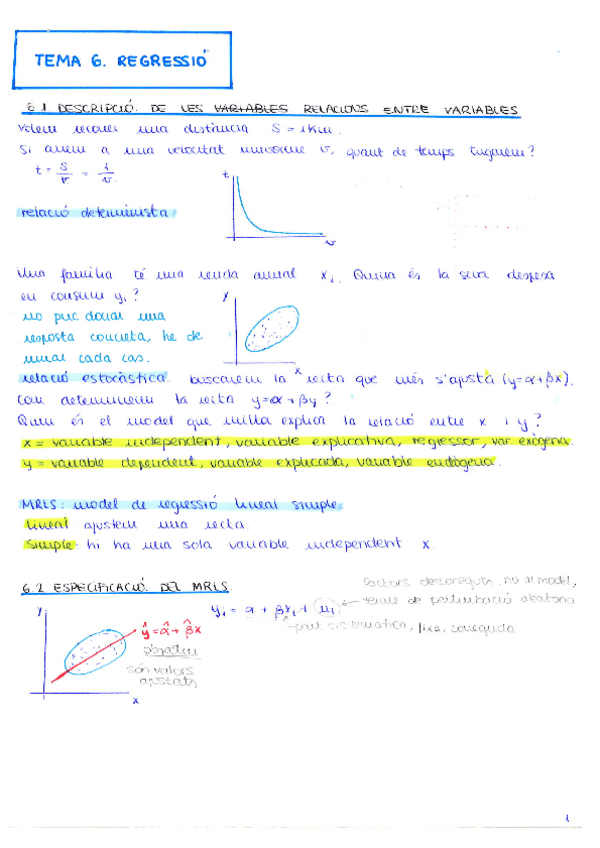 TEMA 6. REGRESSIÓ
6.1 DESCRIPCIÓ DE LES VARIABLES RELACIONS ENTRE VARIABLES
Volem recórrer una distància S = 1Km.
Si anem a una velocitat uniforme v, quant de temps tardarem?
t = S/v = 1/v.
t
v
relació determinista
Una família té una renda anual x₁. Quina és la seva despesa
en consum y₁?
no puc donar una
resposta concreta, he de
mirar cada cas.
y
x
relació estocàstica. buscarem la recta que més s'ajusta (y=α+βx).
Com determinem la recta y=α+βy?
Quin és el model que millor explica la relació entre x i y?
x = variable independent, variable explicativa, regressor, var. exògena.
y = variable dependent, variable explicada, variable endògena.
MRLS: model de regressió lineal simple
Lineal ajustem una recta.
Simple: hi ha una sola variable independent x.
6.2 ESPECIFICACIÓ DEL MRLS
y
x
ŷ = α̂ + β̂x
objectiu
són valors
ajustats
yᵢ = α + βxᵢ + uᵢ
factors desconeguts, no al model,
terme de pertorbació aleatòria
part sistemàtica, fixa, coneguda
1